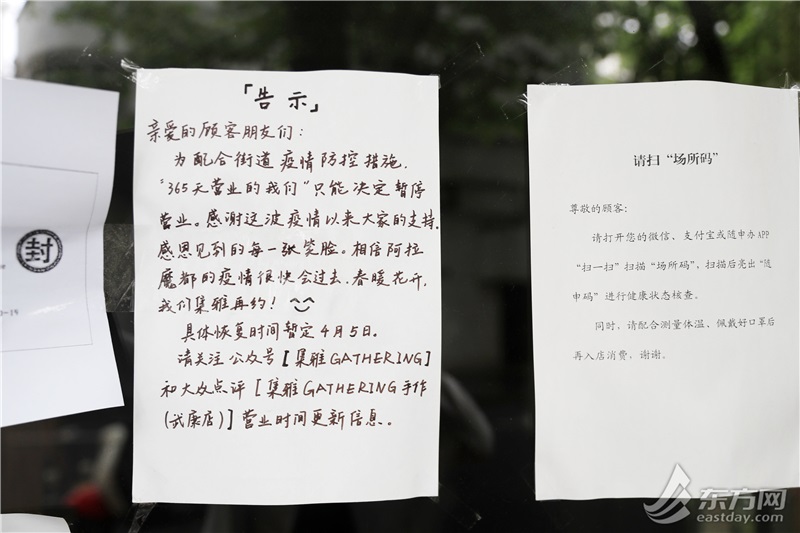 封
「告示」
亲爱的顾客朋友们：
为配合街道疫情防控措施，
“365天营业的我们”只能决定暂停
营业。感谢这波疫情以来大家的支持，
感恩见到的每一张笑脸。相信阿拉
魔都的疫情很快会过去，春暖花开，
我们集雅再约！
具体恢复时间暂定4月5日。
请关注公众号[集雅GATHERING]
和大众点评[集雅GATHERING手作
(武康店)]营业时间更新信息。
请扫“场所码”
尊敬的顾客：
请打开您的微信、支付宝或随申办APP
“扫一扫”扫描“场所码”，扫描后亮出“随
申码”进行健康状态核查。
同时，请配合测量体温、佩戴好口罩后
再入店消费，谢谢。
东方网
eastday.com